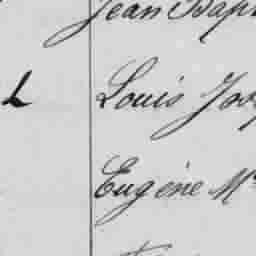 Jean Bap
L Louis Jos
Eugéne M